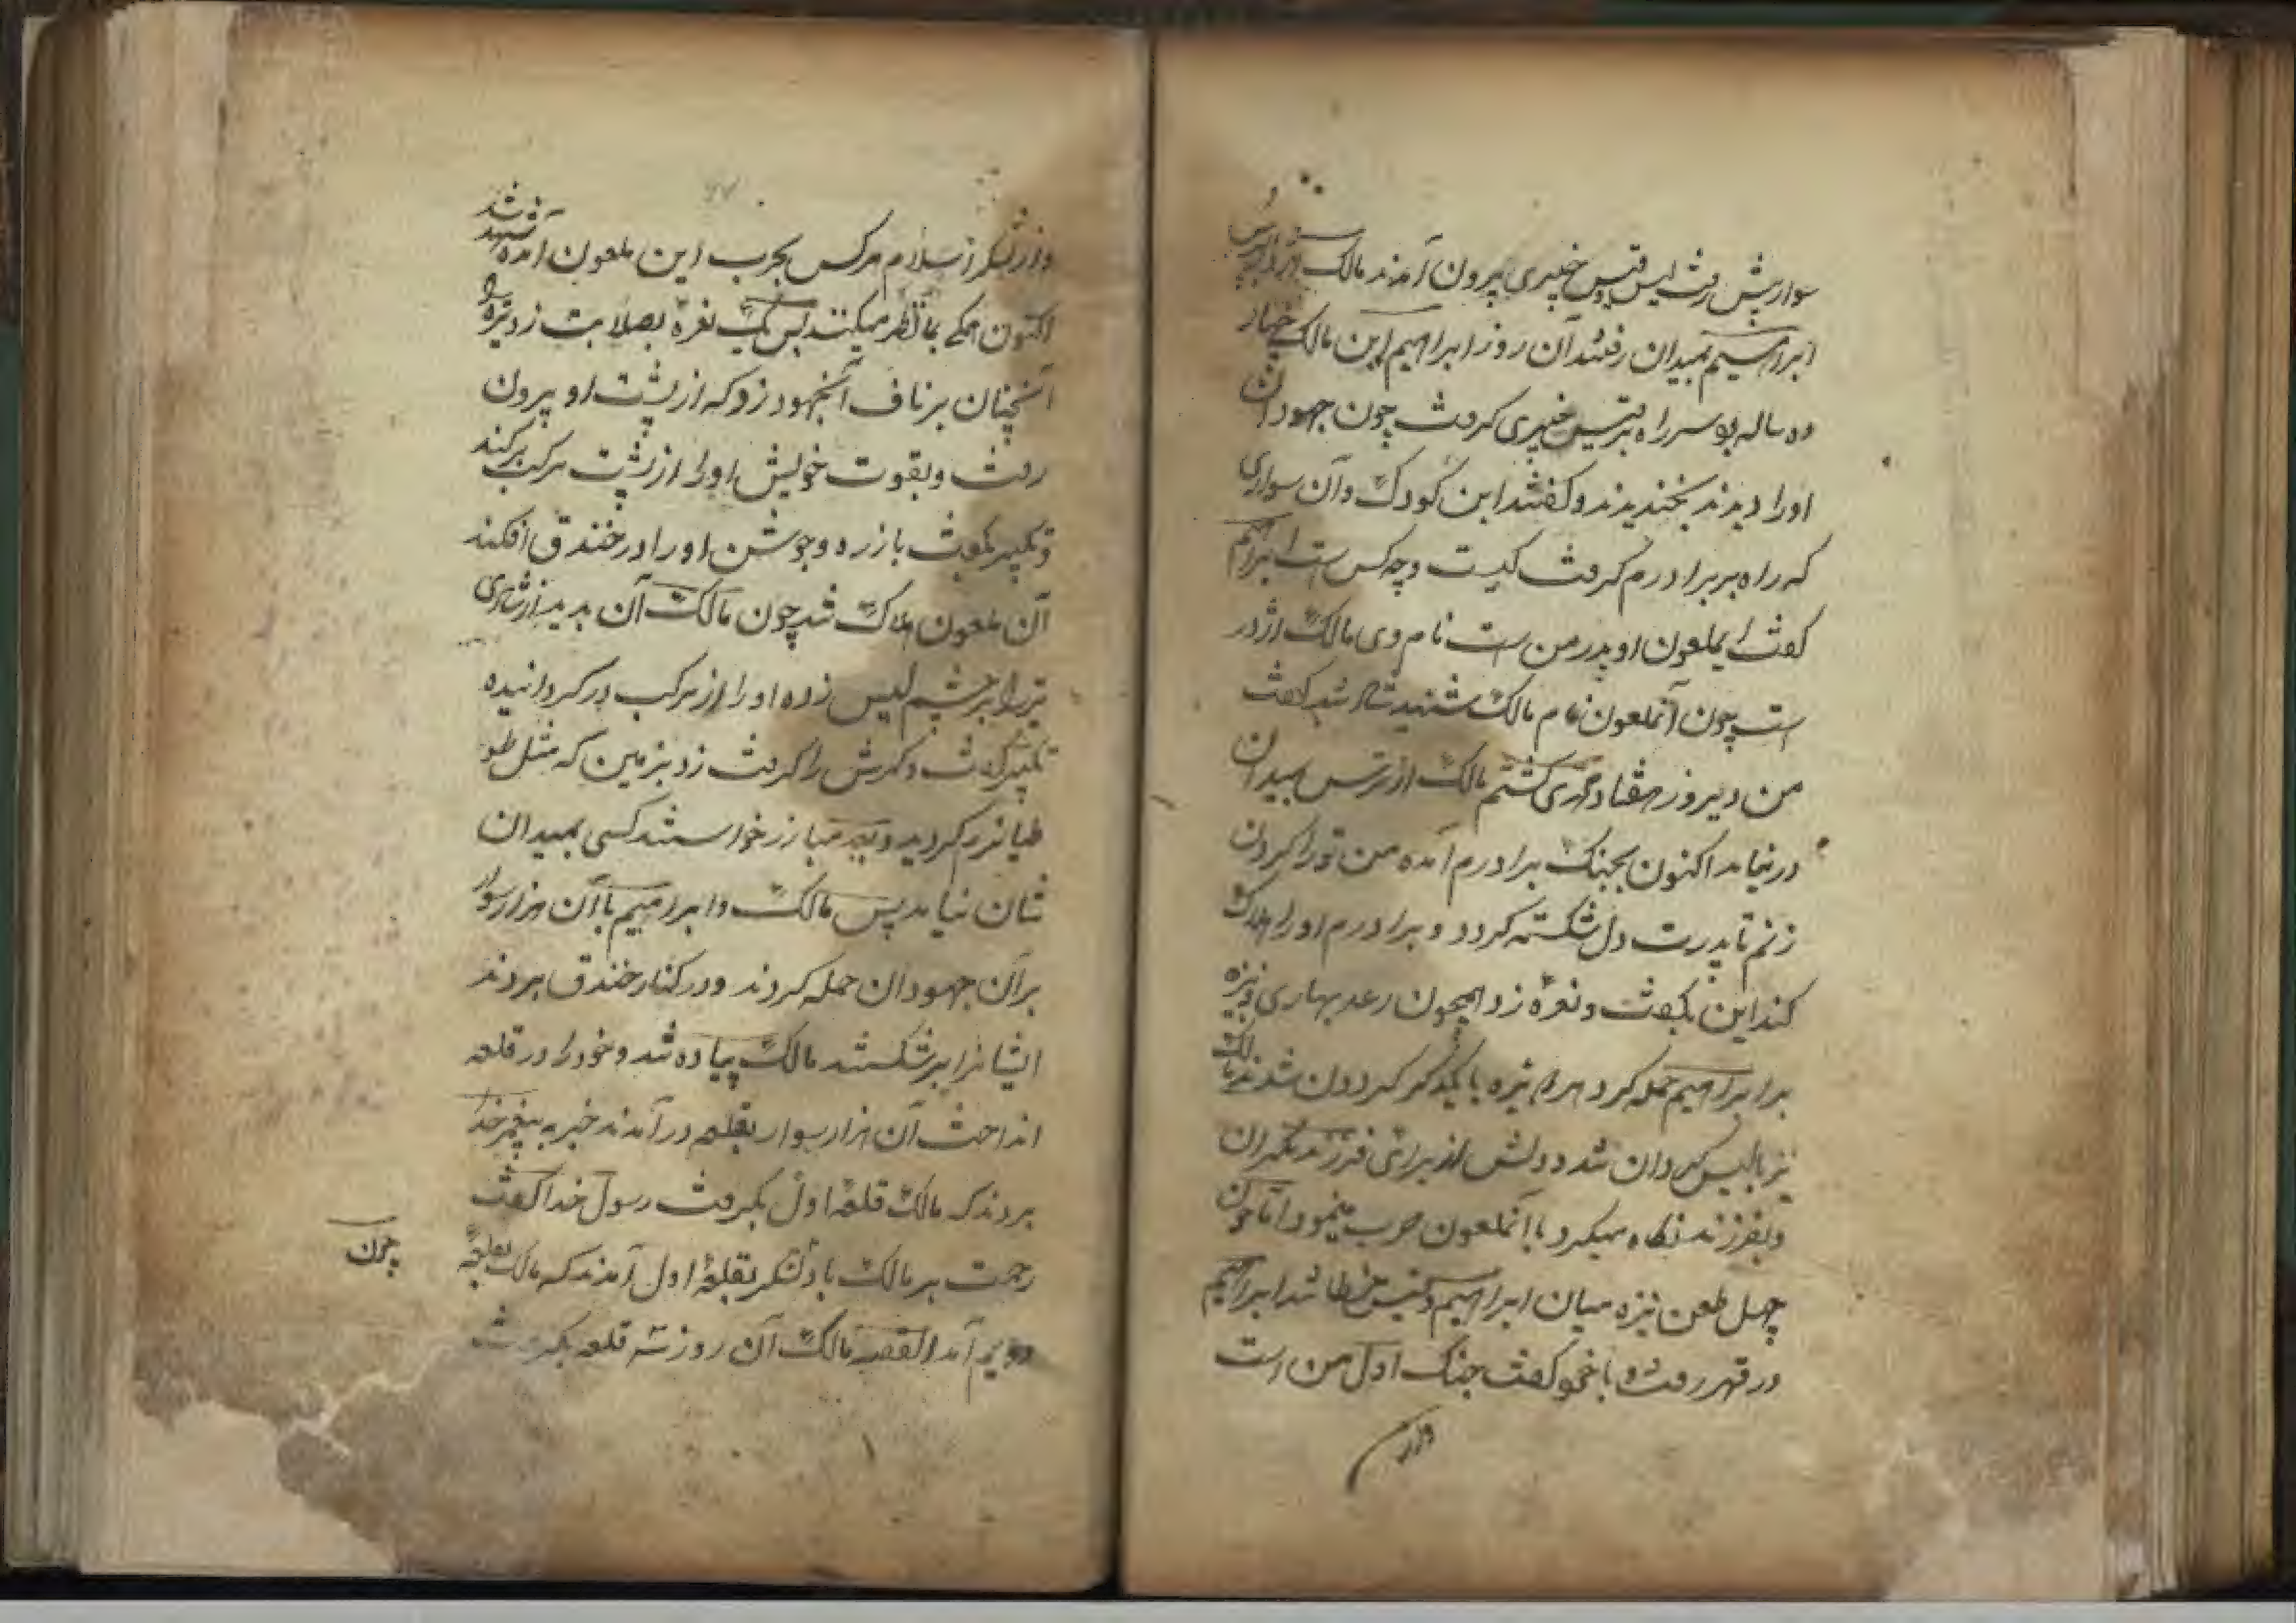 سوار پیش رفت لیس و قیس خیبری بیرون آمدند مالک اژدر و پس
ابراهیم بمیدان رفتند آن روز ابراهیم ابن مالک چهار
ده ساله بود سر راه بر قیس خیبری کرفت چون جهودان
او را دیدند بخندیدند و کفتند این کودک و آن سواری
که راه بر برادرم کرفت کیست و چه کس است ابراهیم
کفت ایملعون او پدر من است نام وی مالک اژدر
است چون آنملعون نام مالک شنید شاد شد کفت
من دیروز هفتاد محمدی کشتم مالک از ترس بمیدان
در نیامد اکنون بجنک برادرم آمده من تو را کردن
زنم تا پدرت دل شکسته کردد و برادرم او را هلاک
کند این بکفت و نعره زد همچون رعد بهاری و نیزه
بر ابراهیم حمله کرد هر دو نیزه با یکدکر کردان شدند مالک
نیز با لیس کردان شد و دلش از برای فرزند نکران
و بفرزند نکاه میکرد با آنملعون حرب مینمود تا چون
چهل طعن نیزه میان ابراهیم و قیس خطا شد ابراهیم
در قهر رفت و با خود کفت جنک اول من است
و از
و از لشکر اسلام هر کس بحرب این ملعون آمده شهید شد
اکنون همکی بما نظر میکنند پس یک نعره بصلابت زد نیزه
آنچنان بر ناف آنجهود زد که از پشت او بیرون
رفت و بقوت خویش او را از پشت مرکب برکند
و تکبیر بکفت با زره و جوشن او را در خندق افکند
آن ملعون هلاک شد چون مالک آن بدید از شادی
نیزه را بر چشم لیس زده او را از مرکب در کردانیده
تکبیر کفت و کمرش را کرفت زد بزمین که مثل طو
طیا نرم کردید و مبارز خواستند کسی بمیدان
شان نیامد پس مالک و ابراهیم با آن هزار سوار
بر آن جهودان حمله کردند و در کنار خندق بردند
ایشانرا بر شکستند مالک پیاده شد و خود را در قلعه
انداخت آن هزار سوار بقلعه در آمدند خبر به پیغمبر خدا
بردند که مالک قلعهٔ اول بکرفت رسول خدا کفت
رحمت بر مالک باد لشکر بقلعهٔ اول آمدند که مالک بقلعهٔ
دویم آمد القصه مالک آن روز سه قلعه بکرفت
چون